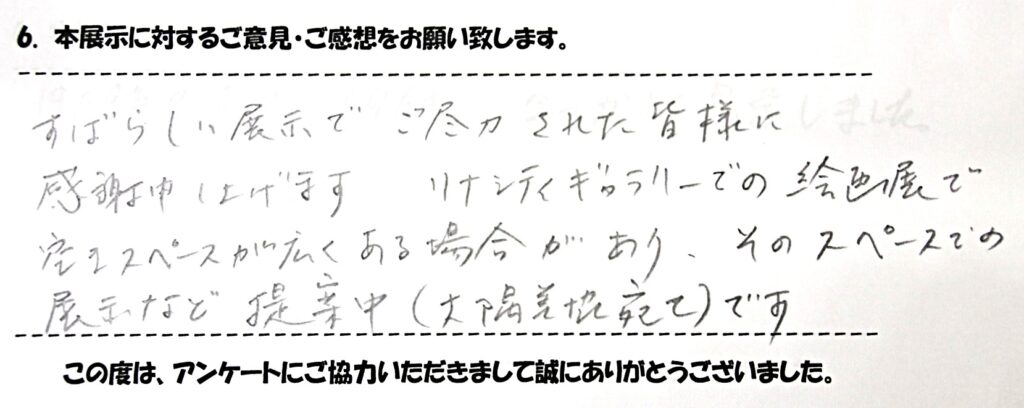 6. 本展示に対するご意見・ご感想をお願い致します。
すばらしい展示で ご尽力された皆様に
感謝申し上げます リナシティギャラリーでの絵画展で
空きスペースが広くある場合があり、そのスペースでの
展示など提案中(大隅美協宛て)です
この度は、アンケートにご協力いただきまして誠にありがとうございました。